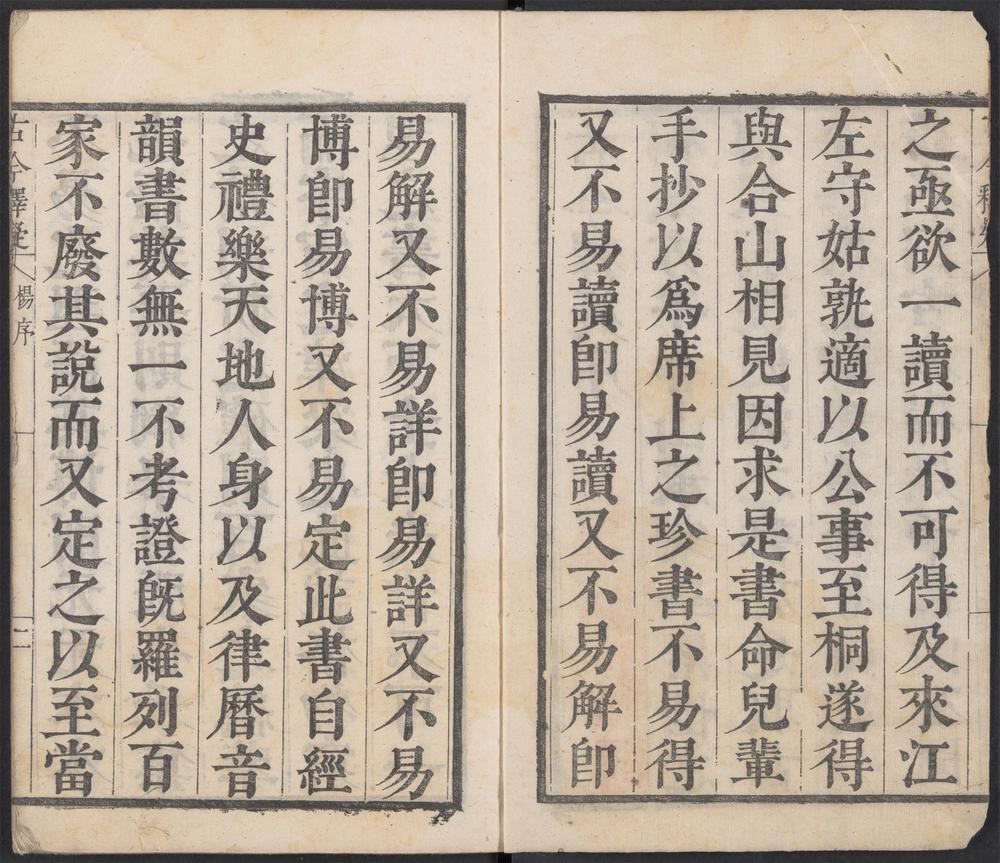 之亟欲一讀而不可得及來江
左守姑孰適以公事至桐遂得
與合山相見因求是書命兒輩
手抄以爲席上之珍書不易得
又不易讀卽易讀又不易解卽
易解又不易詳卽易詳又不易
博卽易博又不易定此書自經
史禮樂天地人身以及律曆音
韻書數無一不考證旣羅列百
家不廢其說而又定之以至當
古今釋疑 楊序 二